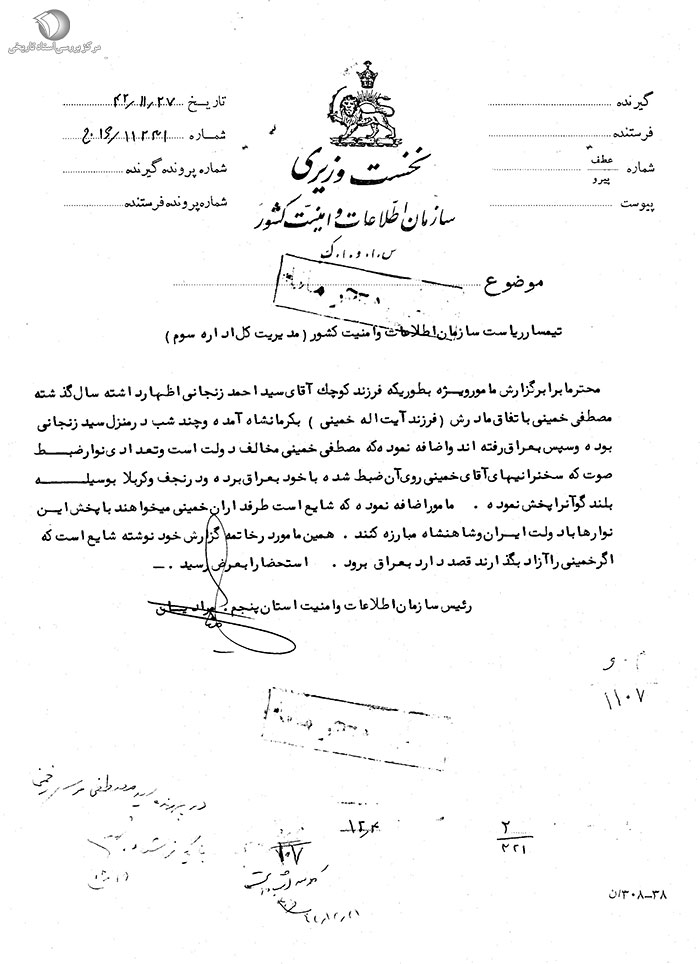 مرکز بررسی اسناد تاریخی
گیرنده
فرستنده
شماره عطف پیرو
پیوست
نخست وزیری
سازمان اطلاعات و امنیت کشور
س.ا.و.ا.ک
تاریخ ۴۲/۱۱/۲۷
شماره ۱۱۲۴۱/
شماره پرونده گیرنده
شماره پرونده فرستنده
موضوع
تیمسار ریاست سازمان اطلاعات وامنیت کشور (مدیریت کل اداره سوم)
محترما برابر گزارش مامورویژه بطوریکه فرزند کوچك آقای سید احمد زنجانی اظهارداشته سال گذشته
مصطفی خمینی باتفاق مادرش (فرزند آیت اله خمینی) بکرمانشاه آمده وچند شب درمنزل سید زنجانی
بوده وسپس بعراق رفته اند واضافه نموده که مصطفی خمینی مخالف دولت است وتعدادی نوار ضبط
صوت که سخنرانیهای آقای خمینی روی آن ضبط شده با خود بعراق برده ودرنجف وکربلا بوسیله
بلند گوآنرا پخش نموده . مامور اضافه نموده که شایع است طرفداران خمینی میخواهند با پخش این
نوارها با دولت ایران وشاهنشاه مبارزه کنند . همین مامور درخاتمه گزارش خود نوشته شایع است که
اگرخمینی را آزاد بگذارند قصد دارد بعراق برود . استحضارا بعرض رسید .ـ
رئیس سازمان اطلاعات وامنیت استان پنجم .
م.و
۱۱۰۷
در پرونده سید مصطفی پسر خمینی
بایگانی شود
۱۲۰۴
۲
۲۲۱
۱۰۷
۴۲/۱۲/۲۱
۳۸ـ۳۰۸/ن